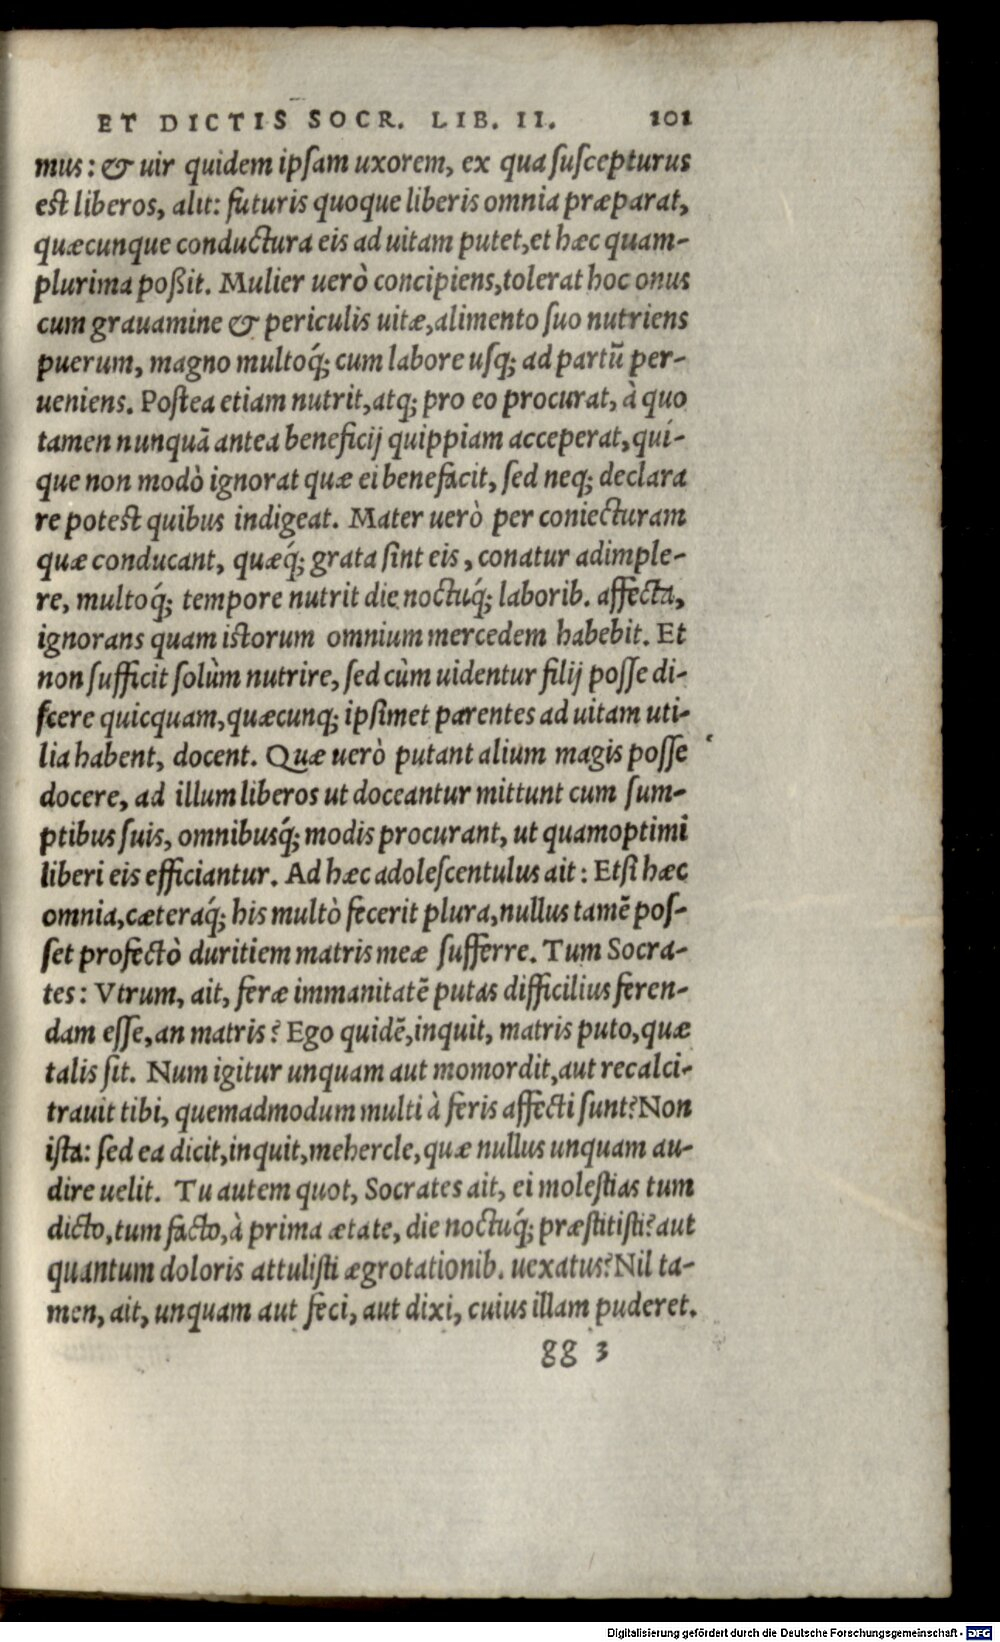 ET DICTIS SOCR. LIB. II. 101
mus: & uir quidem ipsam uxorem, ex qua suscepturus
est liberos, alit: futuris quoque liberis omnia præparat,
quæcunque conductura eis ad uitam putet, et hæc quam-
plurima poßit. Mulier uerò concipiens, tolerat hoc onus
cum grauamine & periculis uitæ, alimento suo nutriens
puerum, magno multoq́; cum labore usq; ad partũ per-
ueniens. Postea etiam nutrit, atq; pro eo procurat, à quo
tamen nunquã antea beneficij quippiam acceperat, qui-
que non modò ignorat quæ ei benefacit, sed neq; declara
re potest quibus indigeat. Mater uerò per coniecturam
quæ conducant, quæq́; grata sint eis, conatur adimple-
re, multoq́; tempore nutrit die noctuq́; laborib. affecta,
ignorans quam istorum omnium mercedem habebit. Et
non sufficit solùm nutrire, sed cùm uidentur filij posse di-
scere quicquam, quæcunq; ipsimet parentes ad uitam uti-
lia habent, docent. Quæ uerò putant alium magis posse
docere, ad illum liberos ut doceantur mittunt cum sum-
ptibus suis, omnibusq́; modis procurant, ut quamoptimi
liberi eis efficiantur. Ad hæc adolescentulus ait: Etsi hæc
omnia, cæteraq́; his multò fecerit plura, nullus tamẽ pos-
set profectò duritiem matris meæ sufferre. Tum Socra-
tes: Vtrum, ait, feræ immanitatẽ putas difficilius feren-
dam esse, an matris? Ego quidẽ, inquit, matris puto, quæ
talis sit. Num igitur unquam aut momordit, aut recalci-
trauit tibi, quemadmodum multi à feris affecti sunt? Non
ista: sed ea dicit, inquit, mehercle, quæ nullus unquam au-
dire uelit. Tu autem quot, Socrates ait, ei molestias tum
dicto, tum facto, à prima ætate, die noctuq́; præstitisti? aut
quantum doloris attulisti ægrotationib. uexatus? Nil ta-
men, ait, unquam aut feci, aut dixi, cuius illam puderet.
gg 3
Digitalisierung gefördert durch die Deutsche Forschungsgemeinschaft - DFG